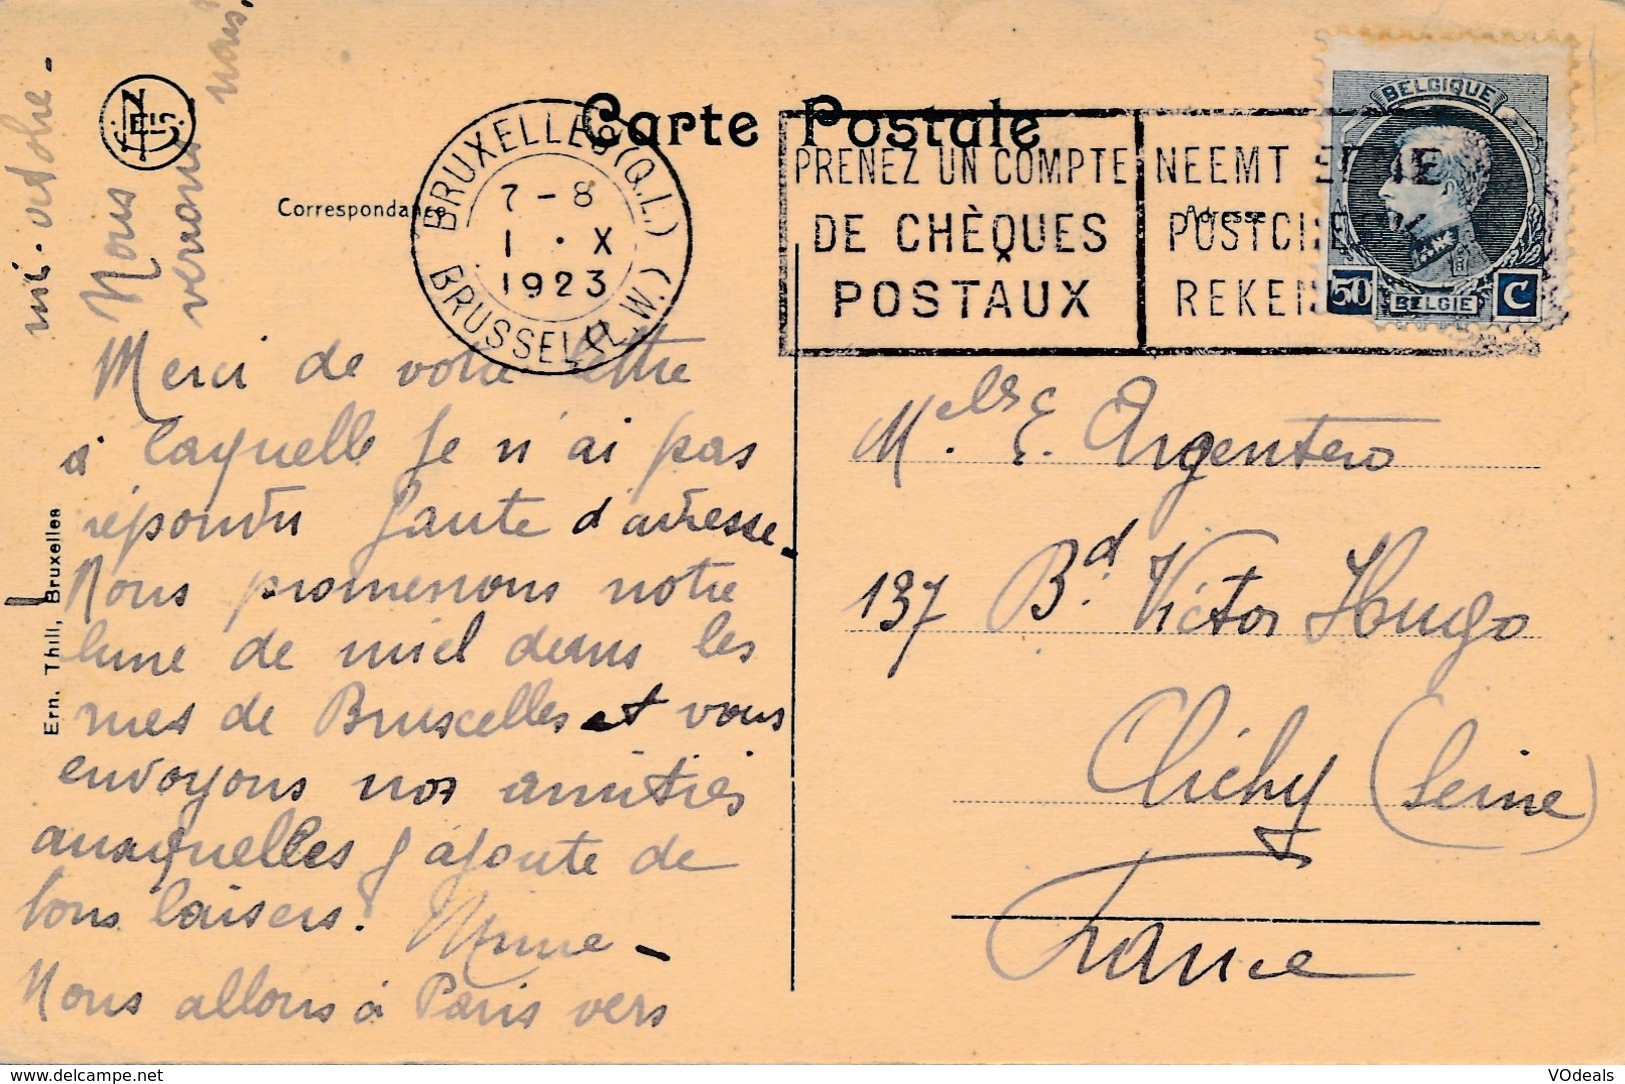 Carte Postale
Correspondance
Adresse
BRUXELLES (Q.L.)
7 - 8
1 · X
1923
BRUSSEL (L.W.)
PRENEZ UN COMPTE
DE CHÈQUES
POSTAUX
NEEMT
REKEN
BELGIQUE
50 BELGIE C
Merci de votre lettre
à laquelle je n'ai pas
répondu faute d'adresse -
Nous promenons notre
lune de miel dans les
rues de Bruxelles et vous
envoyons nos amitiés
auxquelles j'ajoute de
bons baisers.
Nous allons à Paris vers
mi-octobre -
Nous
verrons nous.
Melle E. Argentero
137 Bd. Victor Hugo
Clichy (Seine)
France
Ern. Thill, Bruxelles
http://www.delcampe.net
VOdeals